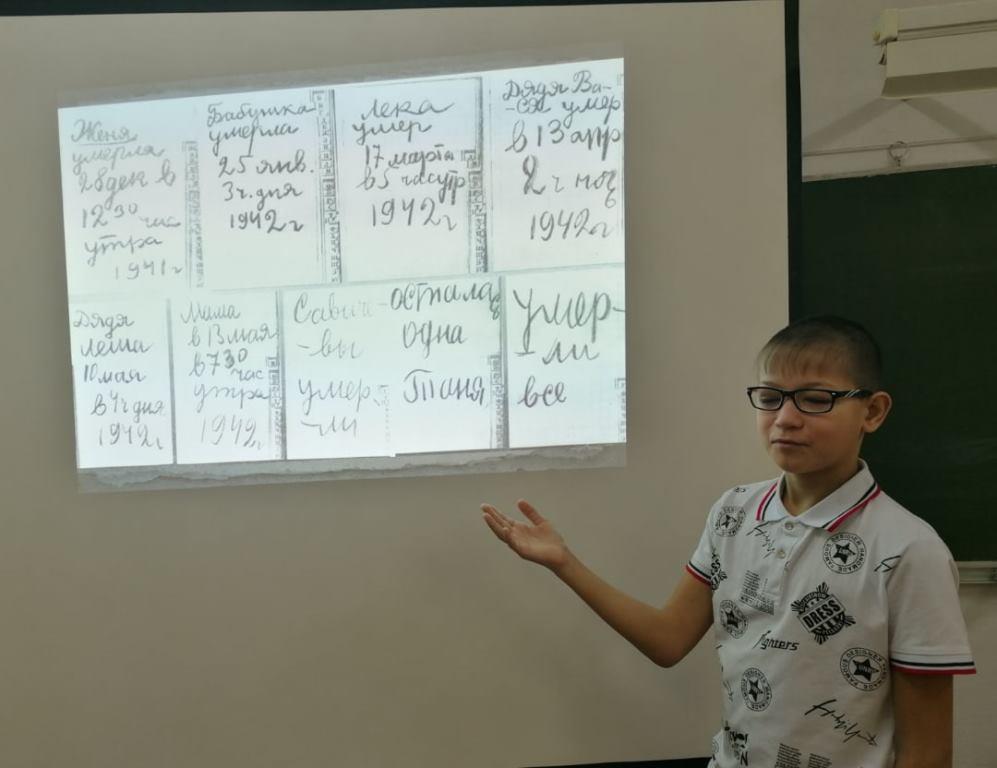 Женя
умерла
28 дек в
12 30 час
утра
1941 г
Бабушка
умерла
25 янв.
3 ч. дня
1942 г
Лека
умер
17 марта
в 5 час утр
1942 г
Дядя Ва-
-ся умер
в 13 апр
2 ч ноч
1942 г
Дядя
Леша
10 мая
в 4 ч дня
1942 г
Мама
в 13 мая
в 7 30
час
утра
1942 г
Савиче-
-вы
умер
-ли
осталась
одна
Таня
Умер-
-ли
все
DRESS
fighters